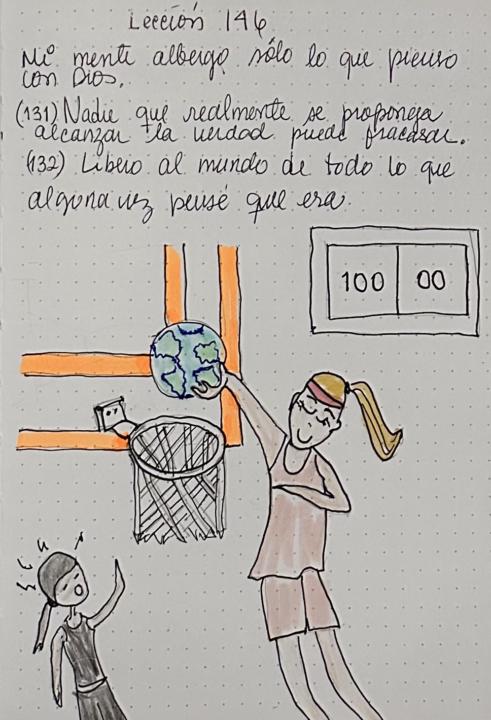 Lección 146
Mi mente alberga sólo lo que pienso
con Dios.
(131) Nadie que realmente se proponga
alcanzar la verdad puede fracasar.
(132) Libero al mundo de todo lo que
alguna vez pensé que era.
100 00